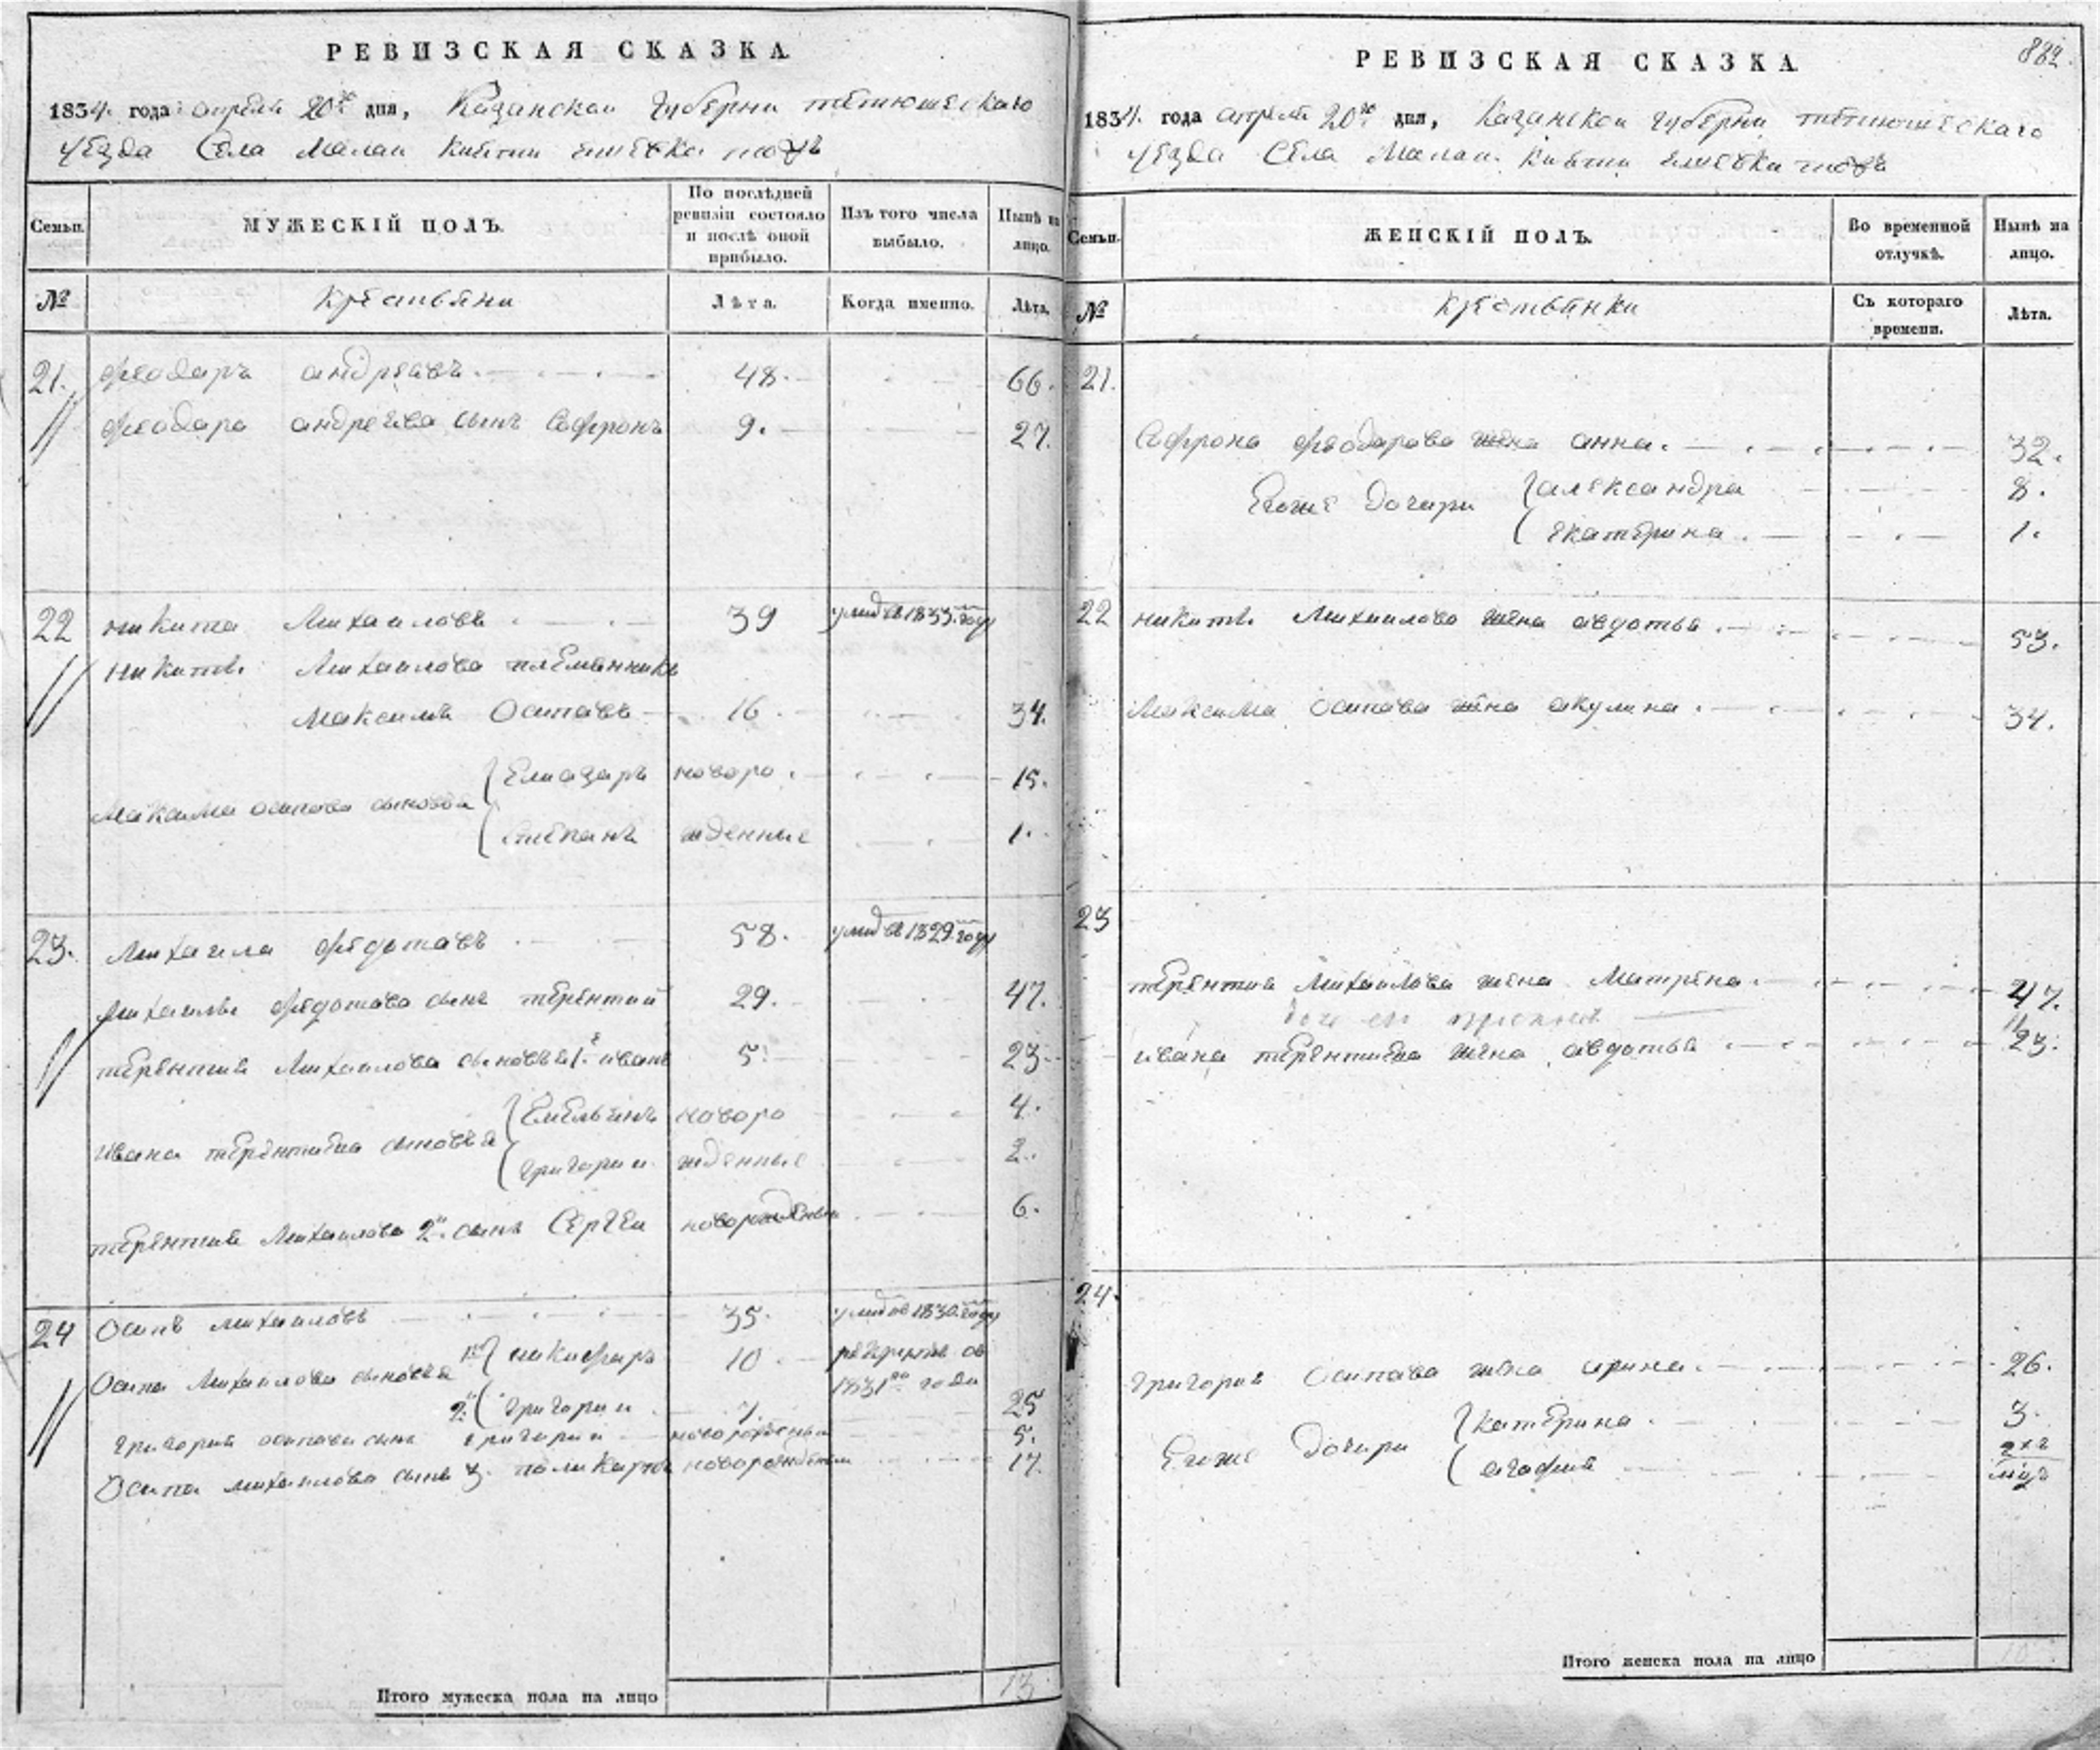 РЕВИЗСКАЯ СКАЗКА
1834. года апреля 20го дня, Казанской губерни тетюшескаго
уезда Села Малаи
МУЖЕСКІЙ ПОЛЪ.
Семьи.
По послѣдней ревизіи состояло и послѣ оной прибыло.
Изъ того числа выбыло.
Нынѣ на лицо.
№
крестьяни
Лѣта.
Когда именно.
Лѣта.
21. феодаръ андреавъ. 48. 66.
феодара андреева сынъ Софронъ 9. 27.
22 никита Михаиловъ 39 умид въ 1833. году
никиты Михаилова племянникъ
Максимъ Осипавъ 16 34.
Максима осипова сыновья
Елиазаръ новоро 15.
Степанъ жденные 1.
23. Михаила федотавъ 58. умид въ 1829. году
Михаилы федотава сынъ терентий 29. 47.
терентия Михаилова сыновья 1. иванъ 5. 23
ивана терентиева сыновья
Емельянъ новоро 4.
григории жденные 2.
терентия Михаилова 2й сынъ Сергеи 6.
24 Осипъ михаиловъ 35. 1830. году
Осипа Михаилова сыновья
никифаръ 10 рекруты въ
1831 годи
2. григории 7. 25
григория осипава сынъ григории 5.
Осипа михаилова сынъ 3. поликарпъ 17.
Итого мужеска пола на лицо 13
РЕВИЗСКАЯ СКАЗКА
882.
1834. года апреля 20го дня, Казанской губерни тетюшескаго
уезда Села Малаи
Семьи.
ЖЕНСКІЙ ПОЛЪ.
Во временной отлучкѣ.
Нынѣ на лицо.
№
крестьянки
Съ котораго времени.
Лѣта.
21.
Софрона феодарова жена анна. 32.
Егоже дочери
александра 8.
екатерина 1.
22 никиты Михаилова жена авдотья 53.
Максима осипава жена акулина 34.
23
терентия Михаилова жена Матрена 47.
11
ивана терентиева жена авдотья 23.
24.
григория осипава жена ирина 26.
Егоже дочери
катерина 3.
агафия
Итого женска пола на лицо 10